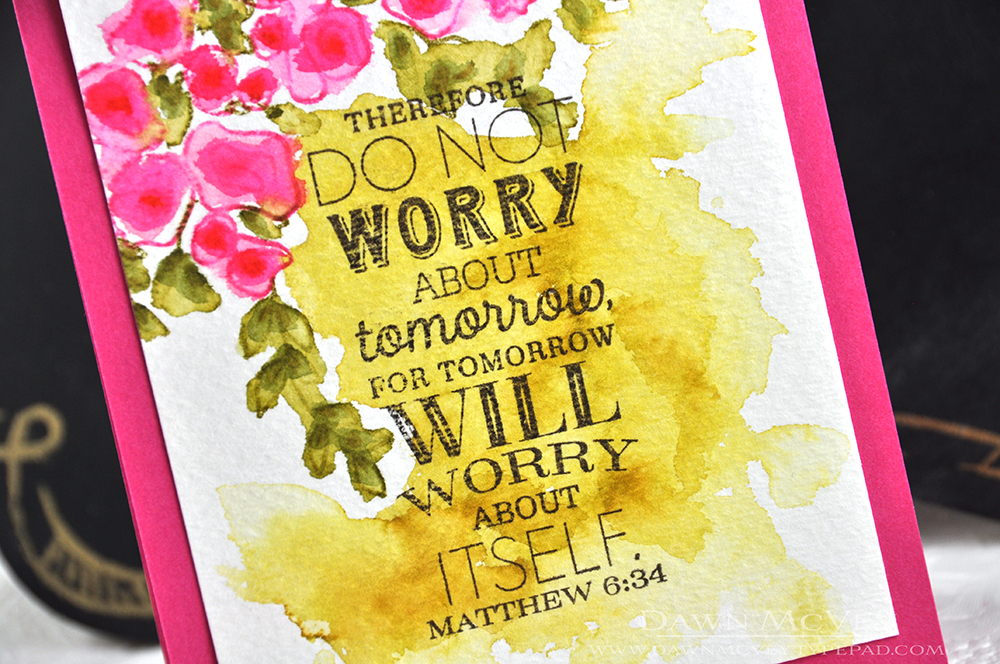 THEREFORE
DO NOT
WORRY
ABOUT
tomorrow,
FOR TOMORROW
WILL
WORRY
ABOUT
ITSELF.
MATTHEW 6:34
DAWN MCVEY
WWW.DAWNMCVEY.TYPEPAD.COM